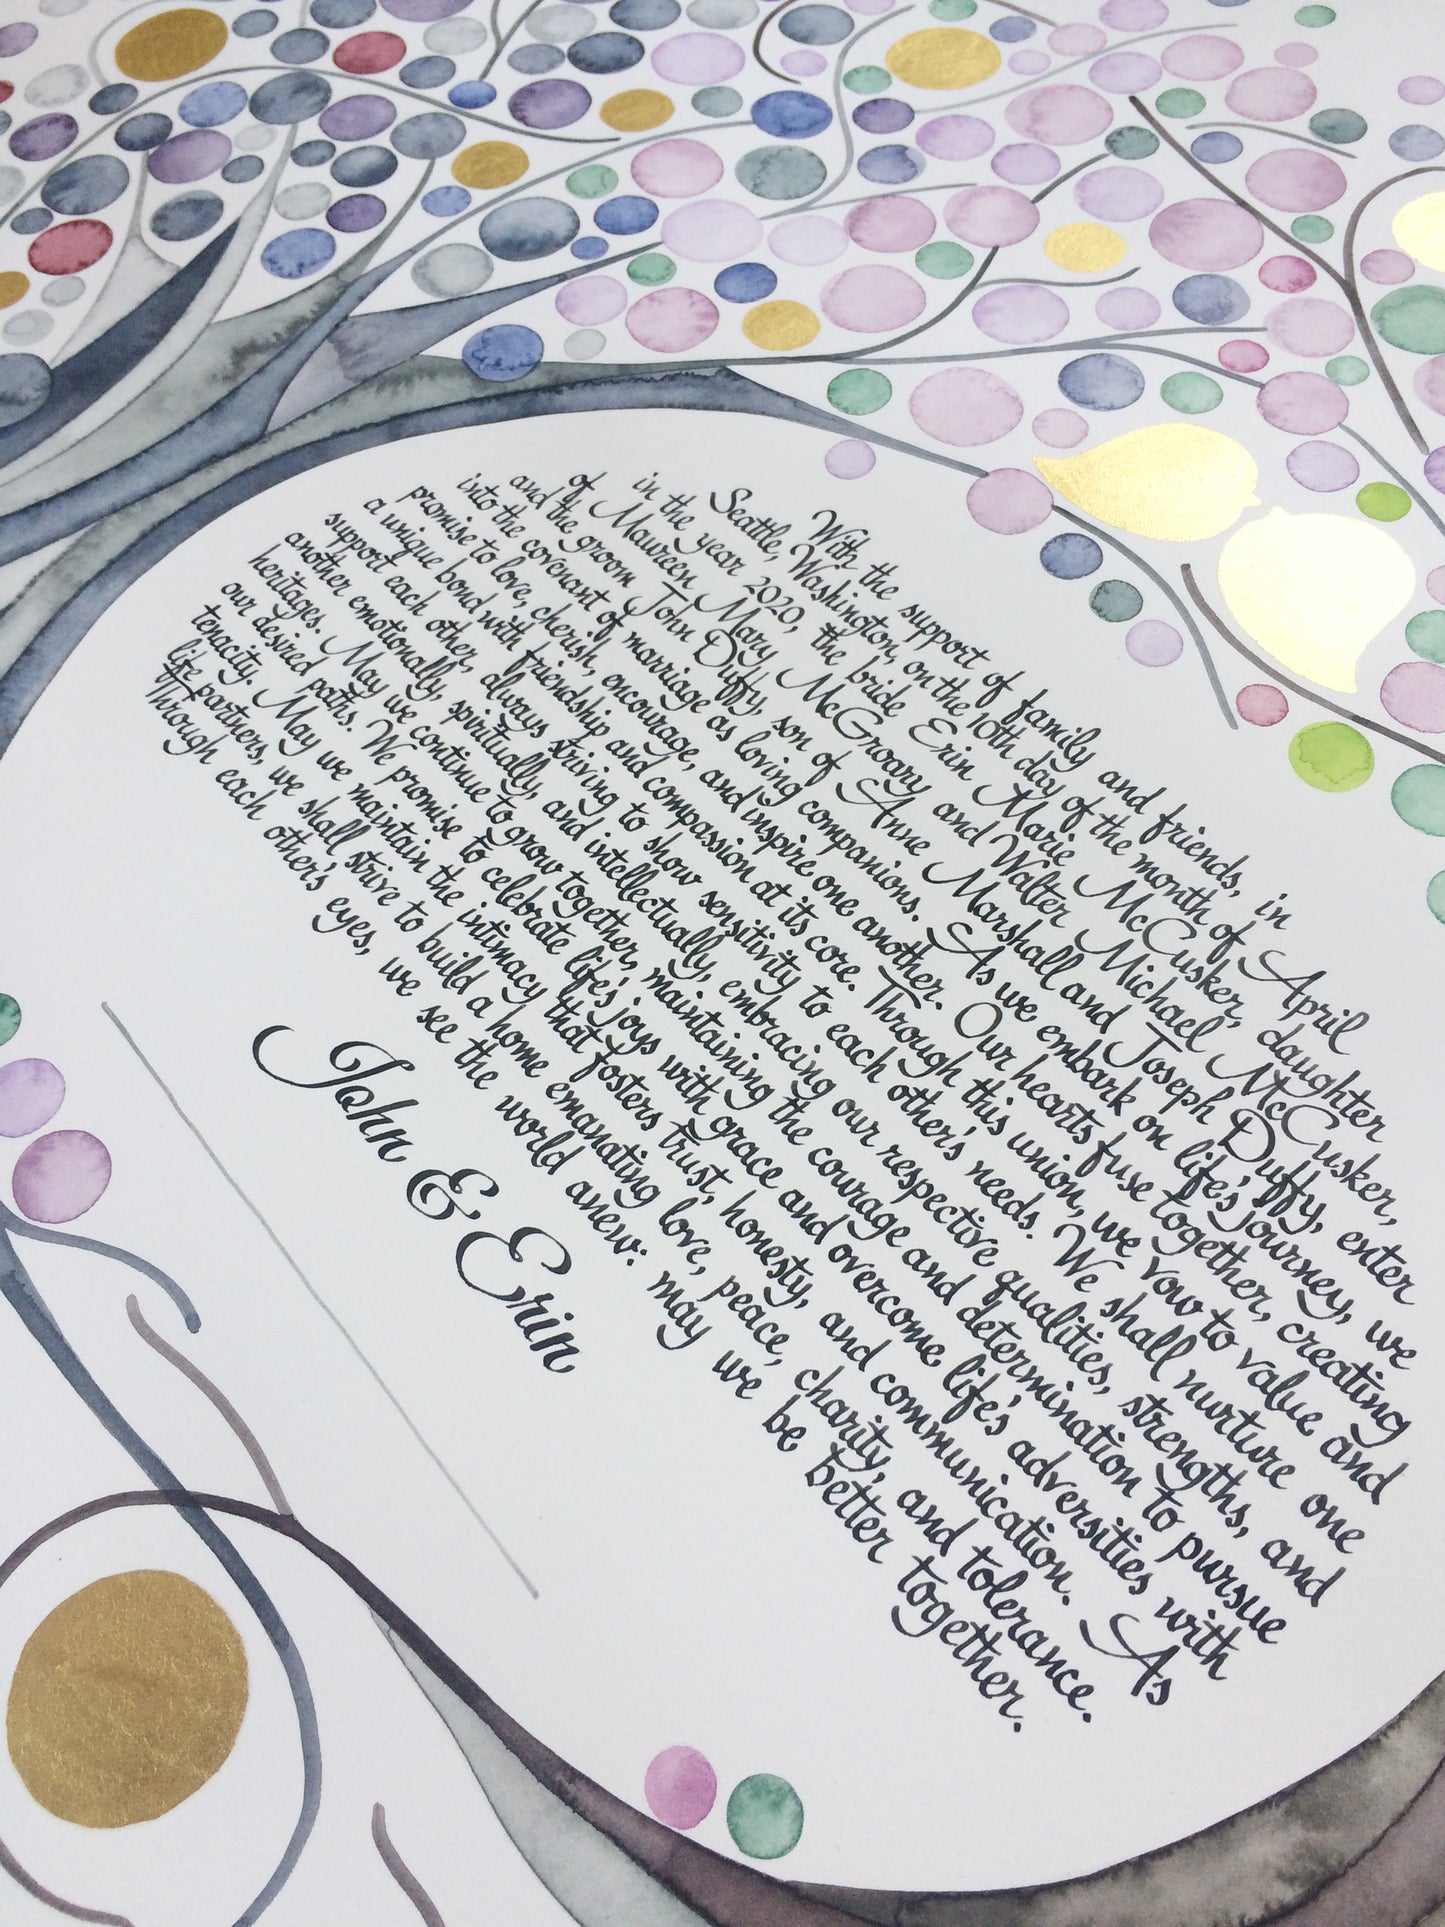 With the support of family and friends, in
Seattle, Washington, on the 10th day of the month of April
in the year 2020, the bride Erin Marie McCusker, daughter
of Maureen Mary McGroary and Walter Michael McCusker,
and the groom John Duffy, son of Anne Marshall and Joseph Duffy, enter
into the covenant of marriage as loving companions. As we embark on life's journey, we
promise to love, cherish, encourage, and inspire one another. Our hearts fuse together, creating
a unique bond with friendship and compassion at its core. Through this union, we vow to value and
support each other, always striving to show sensitivity to each other's needs. We shall nurture one
another emotionally, spiritually, and intellectually, embracing our respective qualities, strengths, and
heritages. May we continue to grow together, maintaining the courage and determination to pursue
our desired paths. We promise to celebrate life's joys with grace and overcome life's adversities with
tenacity. May we maintain the intimacy that fosters trust, honesty, and communication. As
life partners, we shall strive to build a home emanating love, peace, charity, and tolerance.
Through each other's eyes, we see the world anew: may we be better together.
John & Erin